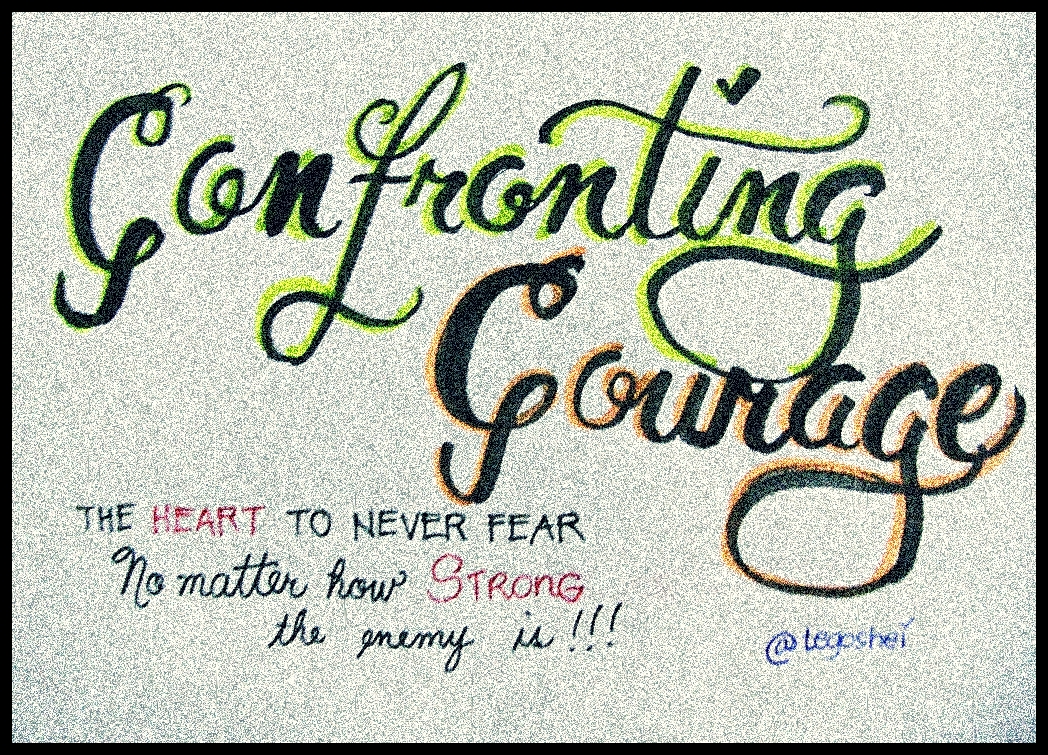 Confronting
Courage
THE HEART TO NEVER FEAR
No matter how STRONG
the enemy is!!!
@legoshei